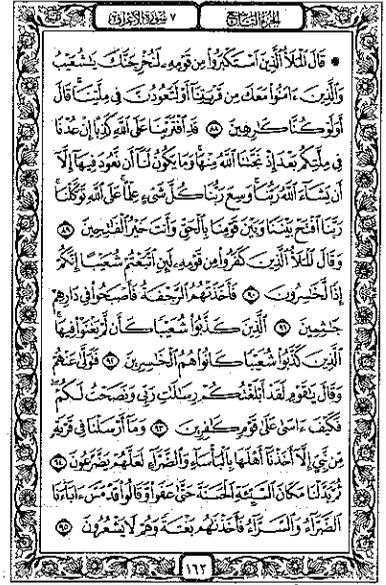 ٧ سورة الأعراف الجزء التاسع
* قَالَ ٱلْمَلَأُ ٱلَّذِينَ ٱسْتَكْبَرُوا۟ مِن قَوْمِهِۦ لَنُخْرِجَنَّكَ يَـٰشُعَيْبُ
وَٱلَّذِينَ ءَامَنُوا۟ مَعَكَ مِن قَرْيَتِنَآ أَوْ لَتَعُودُنَّ فِى مِلَّتِنَا ۚ قَالَ
أَوَلَوْ كُنَّا كَـٰرِهِينَ ٨٨ قَدِ ٱفْتَرَيْنَا عَلَى ٱللَّهِ كَذِبًا إِنْ عُدْنَا
فِى مِلَّتِكُم بَعْدَ إِذْ نَجَّىٰنَا ٱللَّهُ مِنْهَا ۚ وَمَا يَكُونُ لَنَآ أَن نَّعُودَ فِيهَآ إِلَّآ
أَن يَشَآءَ ٱللَّهُ رَبُّنَا ۚ وَسِعَ رَبُّنَا كُلَّ شَىْءٍ عِلْمًا ۚ عَلَى ٱللَّهِ تَوَكَّلْنَا ۚ
رَبَّنَا ٱفْتَحْ بَيْنَنَا وَبَيْنَ قَوْمِنَا بِٱلْحَقِّ وَأَنتَ خَيْرُ ٱلْفَـٰتِحِينَ ٨٩
وَقَالَ ٱلْمَلَأُ ٱلَّذِينَ كَفَرُوا۟ مِن قَوْمِهِۦ لَئِنِ ٱتَّبَعْتُمْ شُعَيْبًا إِنَّكُمْ
إِذًا لَّخَـٰسِرُونَ ٩٠ فَأَخَذَتْهُمُ ٱلرَّجْفَةُ فَأَصْبَحُوا۟ فِى دَارِهِمْ
جَـٰثِمِينَ ٩١ ٱلَّذِينَ كَذَّبُوا۟ شُعَيْبًا كَأَن لَّمْ يَغْنَوْا۟ فِيهَا ۚ
ٱلَّذِينَ كَذَّبُوا۟ شُعَيْبًا كَانُوا۟ هُمُ ٱلْخَـٰسِرِينَ ٩٢ فَتَوَلَّىٰ عَنْهُمْ
وَقَالَ يَـٰقَوْمِ لَقَدْ أَبْلَغْتُكُمْ رِسَـٰلَـٰتِ رَبِّى وَنَصَحْتُ لَكُمْ ۖ
فَكَيْفَ ءَاسَىٰ عَلَىٰ قَوْمٍ كَـٰفِرِينَ ٩٣ وَمَآ أَرْسَلْنَا فِى قَرْيَةٍ
مِّن نَّبِىٍّ إِلَّآ أَخَذْنَآ أَهْلَهَا بِٱلْبَأْسَآءِ وَٱلضَّرَّآءِ لَعَلَّهُمْ يَضَّرَّعُونَ ٩٤
ثُمَّ بَدَّلْنَا مَكَانَ ٱلسَّيِّئَةِ ٱلْحَسَنَةَ حَتَّىٰ عَفَوا۟ وَّقَالُوا۟ قَدْ مَسَّ ءَابَآءَنَا
ٱلضَّرَّآءُ وَٱلسَّرَّآءُ فَأَخَذْنَـٰهُم بَغْتَةً وَهُمْ لَا يَشْعُرُونَ ٩٥
١٦٢